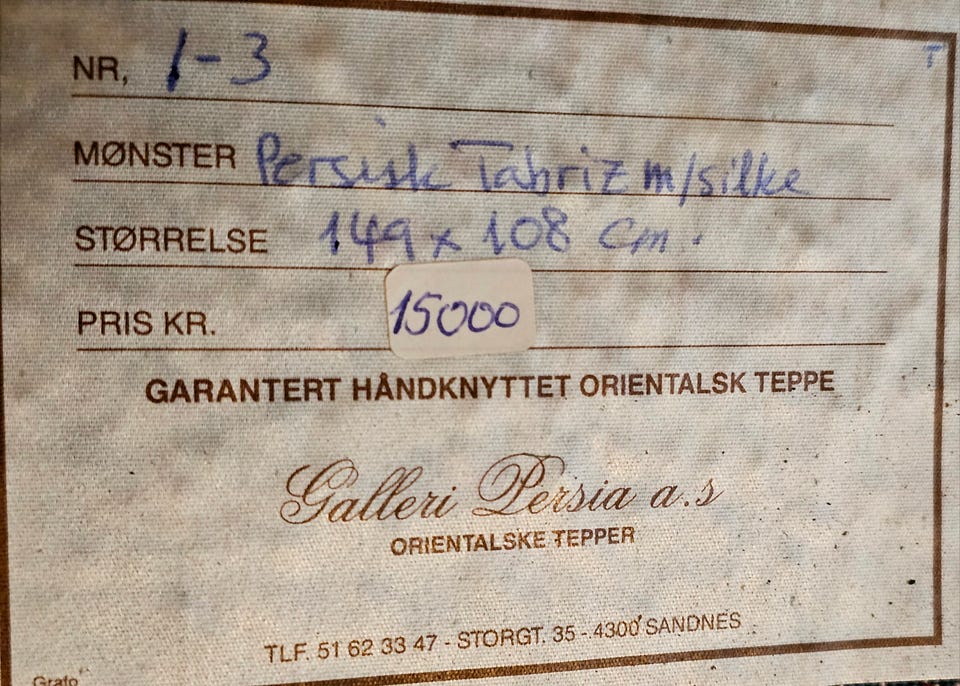 T
NR, 1-3
MØNSTER Persisk Tabriz m/silke
STØRRELSE 149 x 108 cm.
PRIS KR. 15000
GARANTERT HÅNDKNYTTET ORIENTALSK TEPPE
Galleri Persia a.s
ORIENTALSKE TEPPER
TLF. 51 62 33 47 - STORGT. 35 - 4300 SANDNES
Grafo